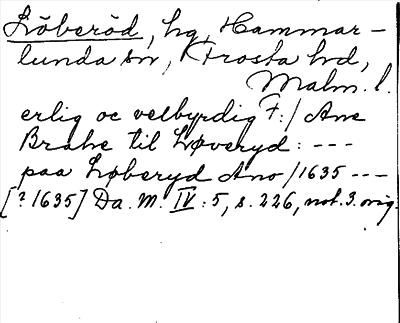 Löberöd, hg, Hammar-
lunda sn, Frosta hd,
Malm. l.
erlig oc velbyrdig F:/ Ane
Brahe til Løveryd: ---
paa Løberyd Ano/1635 ---
[? 1635] Da. M. IV: 5, s. 226, not. 3. orig.